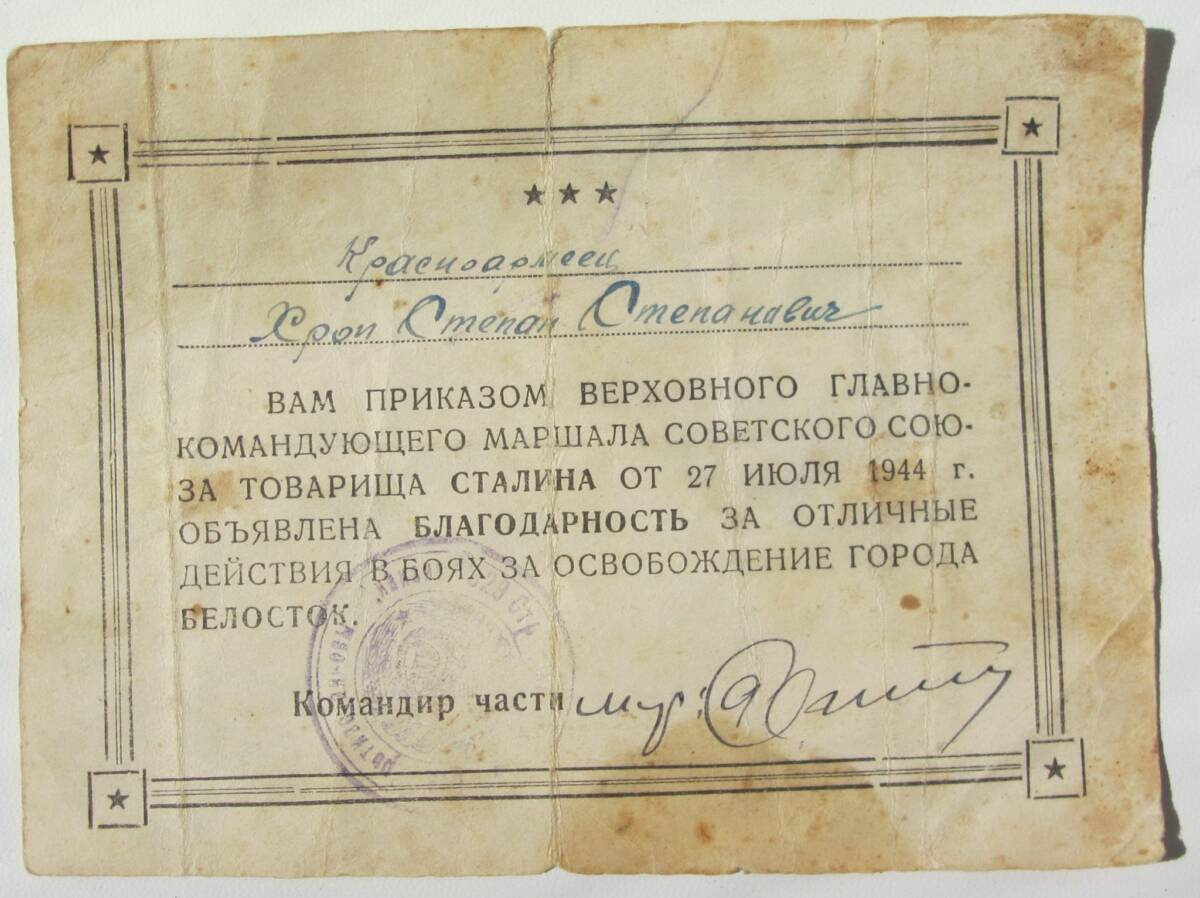 Красноармеец
Хроп Степан Степанавич
ВАМ ПРИКАЗОМ ВЕРХОВНОГО ГЛАВНО-
КОМАНДУЮЩЕГО МАРШАЛА СОВЕТСКОГО СОЮ-
ЗА ТОВАРИЩА СТАЛИНА ОТ 27 ИЮЛЯ 1944 г.
ОБЪЯВЛЕНА БЛАГОДАРНОСТЬ ЗА ОТЛИЧНЫЕ
ДЕЙСТВИЯ В БОЯХ ЗА ОСВОБОЖДЕНИЕ ГОРОДА
БЕЛОСТОК.
Командир части